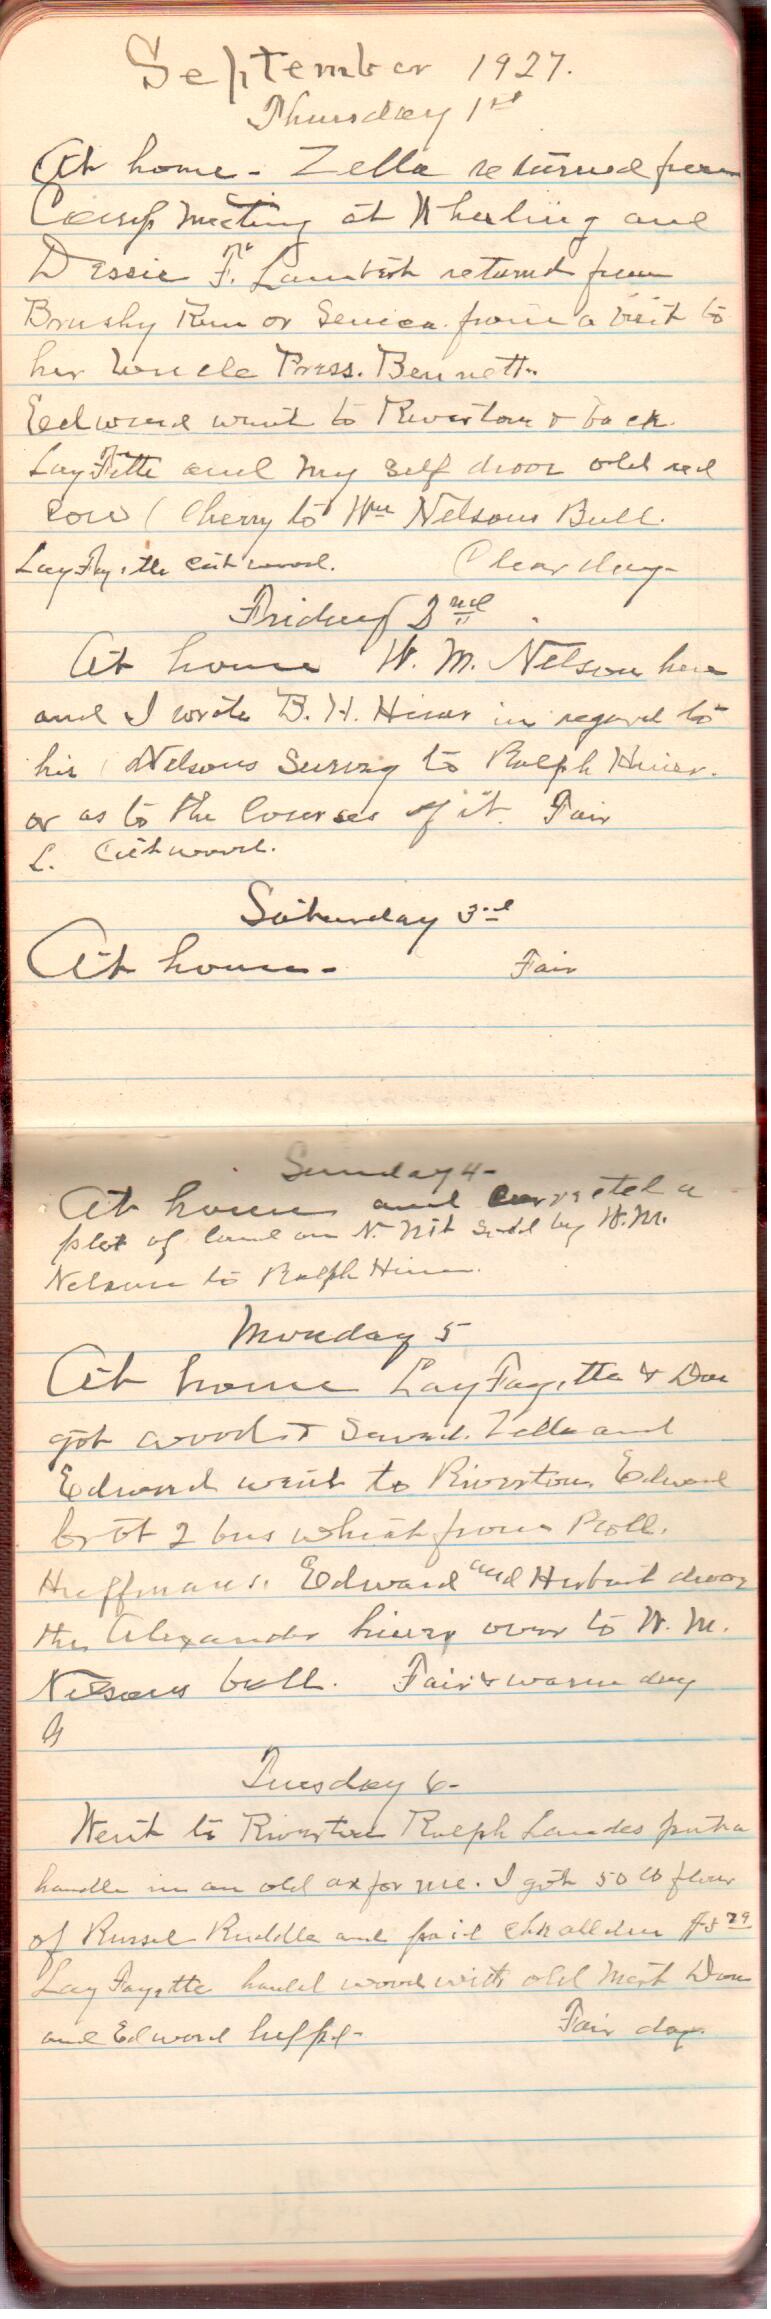 September 1927.
Thursday 1st
At home - Zella returned from
Camp Meeting at Wheeling and
Dessie F. Lambert returned from
Brushy Run or Seneca from a visit to
her Uncle Press. Bennett.
Edward went to Riverton & back.
LayFette and my self droov old red
cow ( Cherry to Wm Nelsons Bull.
LayFayette cut wood. Clear day-
Friday 2nd
At home W. M. Nelson here
and I wrote B. H. Hiner in regard to
his ( Nelsons Survey to Ralph Hiner.
or as to the Courses of it. Fair
L. Cut wood.
Saturday 3rd
At home - Fair
Sunday 4-
At home and corrected a
plot of land on N. Mt sold by W.M.
Nelson to Ralph Hiner.
Monday 5
At home LayFayette & Don
got wood & Sawed. Zella and
Edward went to Riverton, Edward
brot 2 bus wheat from
Huffmans. Edward and Herbert droov
the Alexander over to W. M.
Nelsons bull. Fair & warm day
Tuesday 6-
Went to Riverton Ralph Landes put a
handle in an old ax for me. I got 50 lb flour
of Russel Ruddle and paid
LayFayette hauld wood with old Don
and Edward helpd- Fair day.